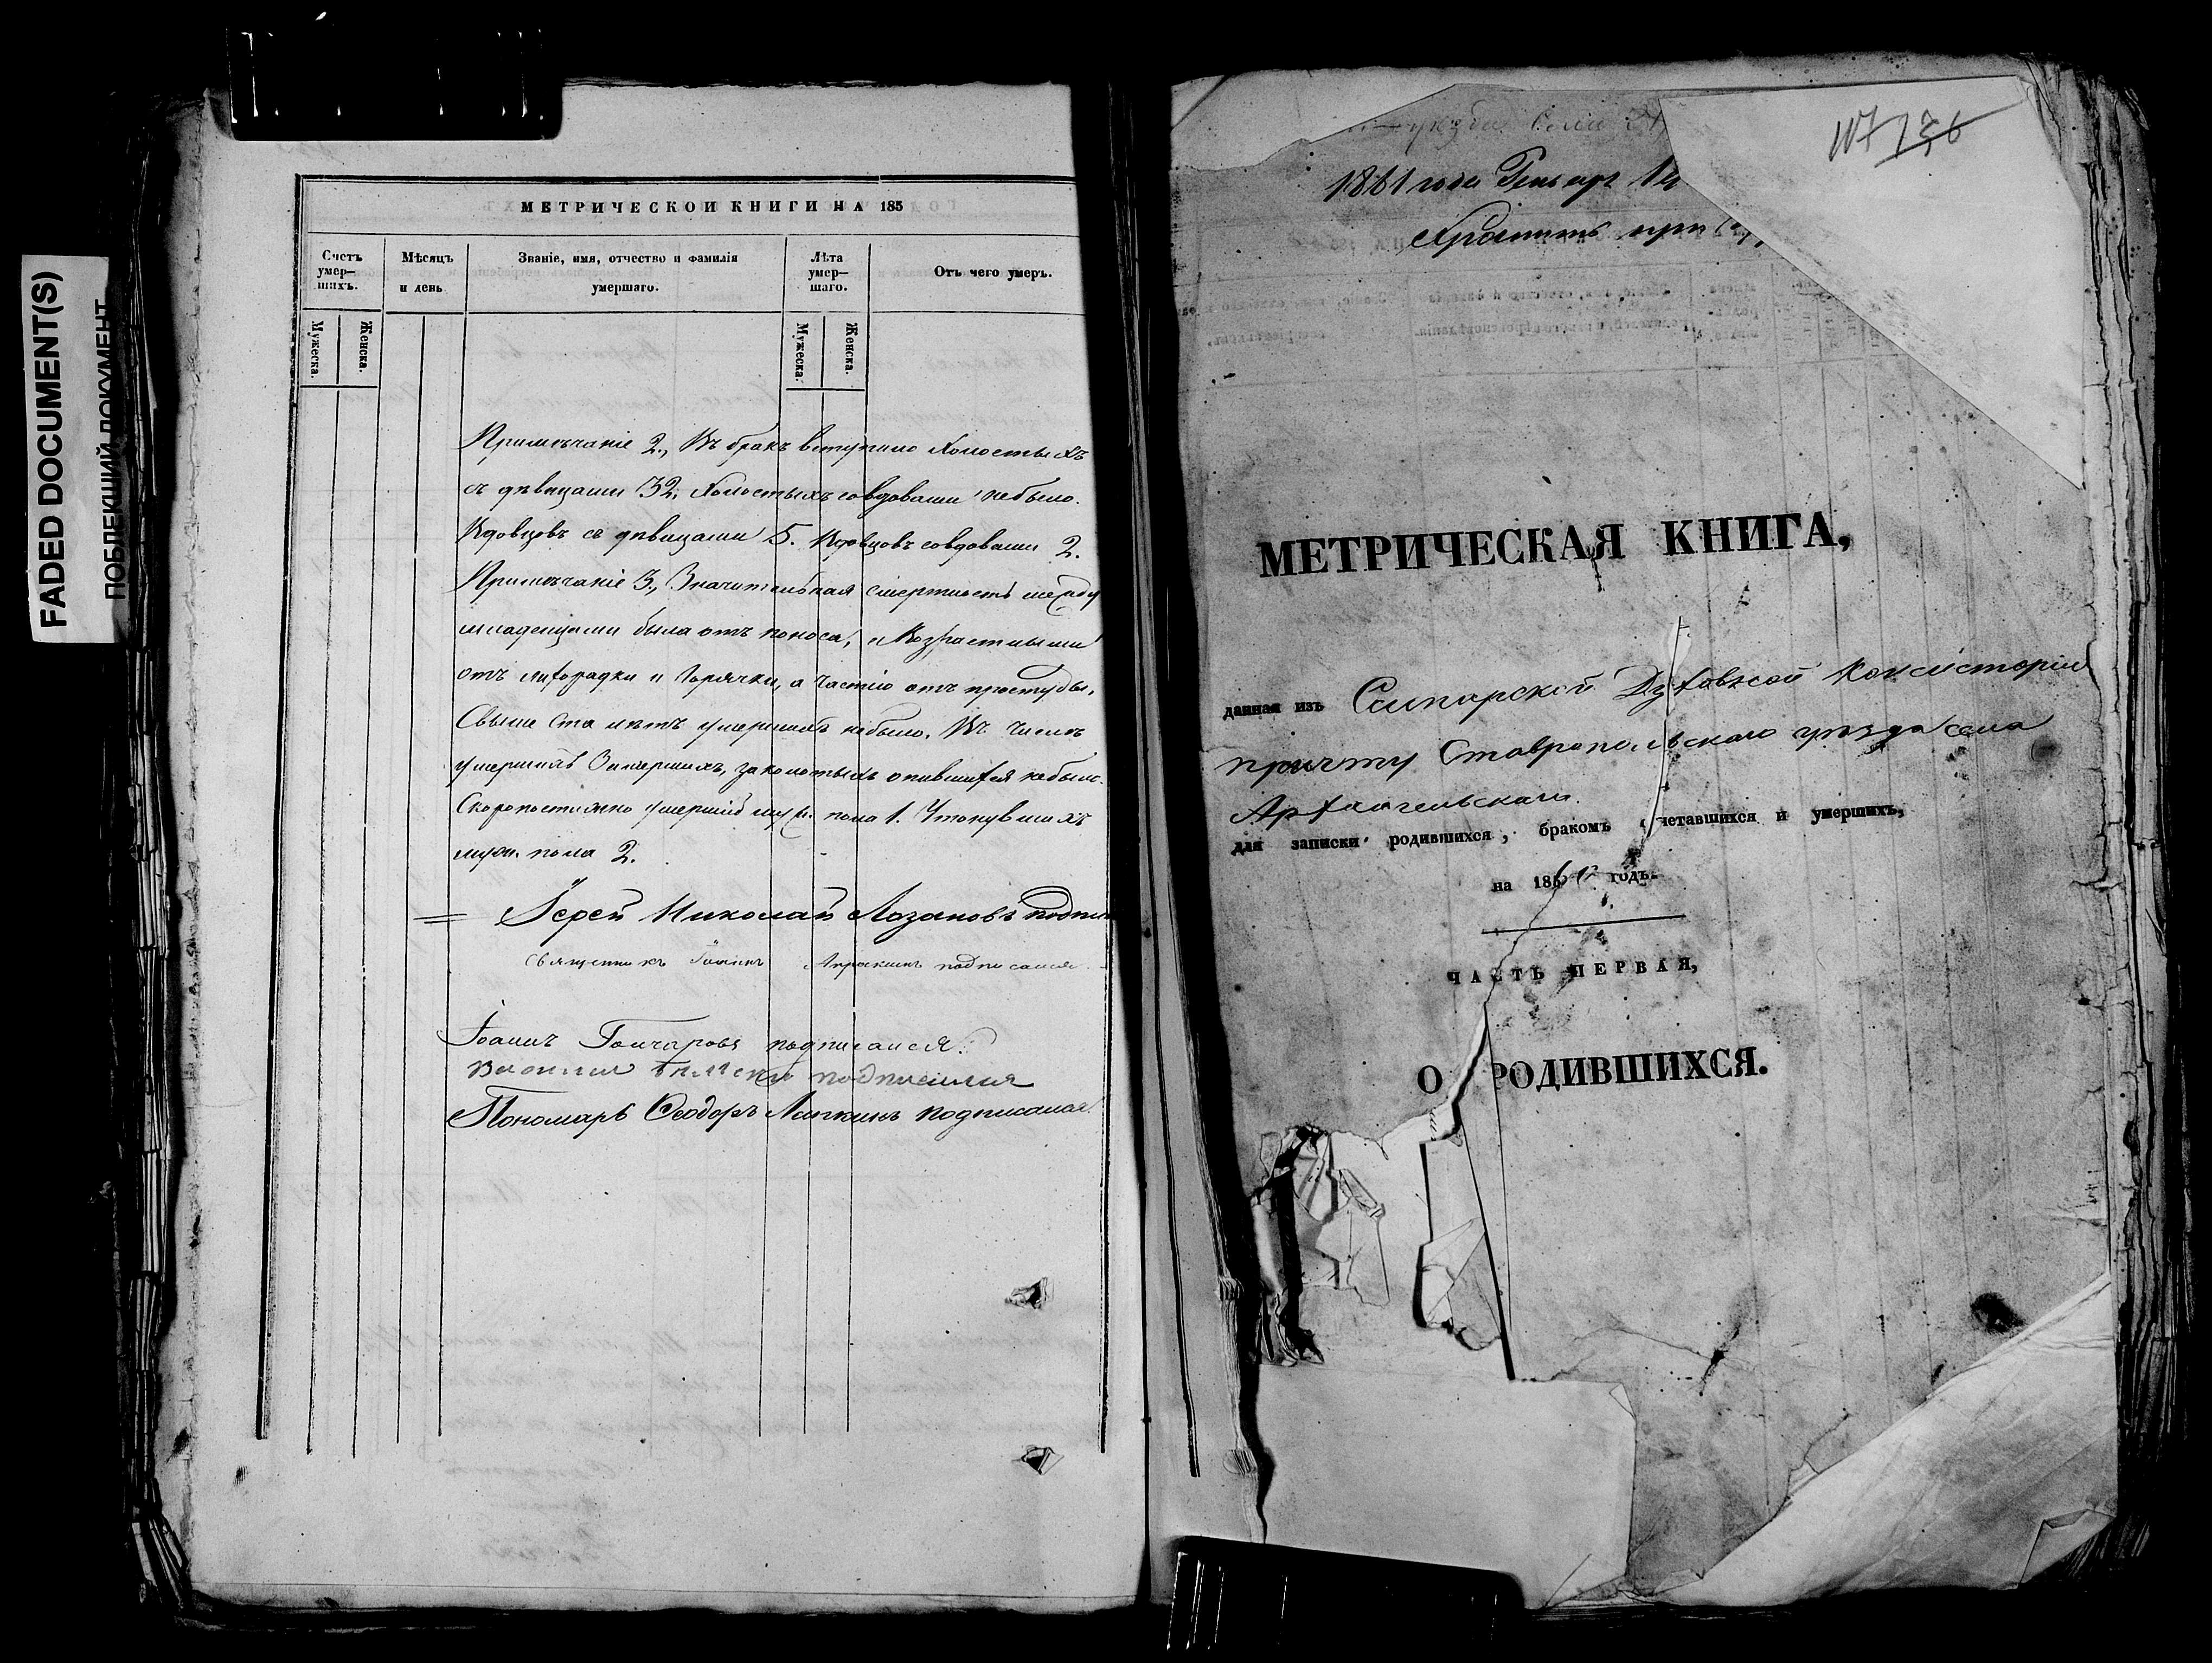 FADED DOCUMENT(S)
ПОБЛЕКЩИЙ ДОКУМЕНТ
МЕТРИЧЕСКОЙ КНИГИ НА 185
Счетъ умер— шихъ.
Мѣсяцъ и день
Званіе, имя, отчество и фамилія умершаго.
Лѣта умер— шаго.
Отъ чего умеръ.
Мужеска.
Женска.
Мужеска.
Женска.
Примѣчаніе 2., Въ бракъ вступило холостыхъ
съ дѣвицами 32, холостыхъ совдовами небыло.
Вдовцовъ съ дѣвицами 5. Вдовцовъ совдовами 2.
Примѣчаніе 3., Значительная смертность между
младенцами была отъ поноса, а возрастными
отъ лихорадки и горячки, а частію отъ простуды.
Свыше ста лѣтъ умершихъ небыло. Въ числѣ
умершихъ замерзшихъ, заколотыхъ опившихся небыло.
Скоропостижно умершій муж. пола 1. Утонувшихъ
муж. пола 2.
Іерей Николай Лозановъ
священникъ Іоаннъ подписался
Іоаннъ Гончаровъ подписался.
подписался
Пономарь Ѳеодоръ Липкинъ подписался.
117 136
1861 года
Хранить при
МЕТРИЧЕСКАЯ КНИГА,
данная изъ Самарской Духовной Консисторіи
причту Ставропольскаго уѣзда села
Архангельскаго.
для записки родившихся, бракомъ четавшихся и умершихъ,
на 1861 годъ.
ЧАСТЬ ПЕРВАЯ,
О РОДИВШИХСЯ.